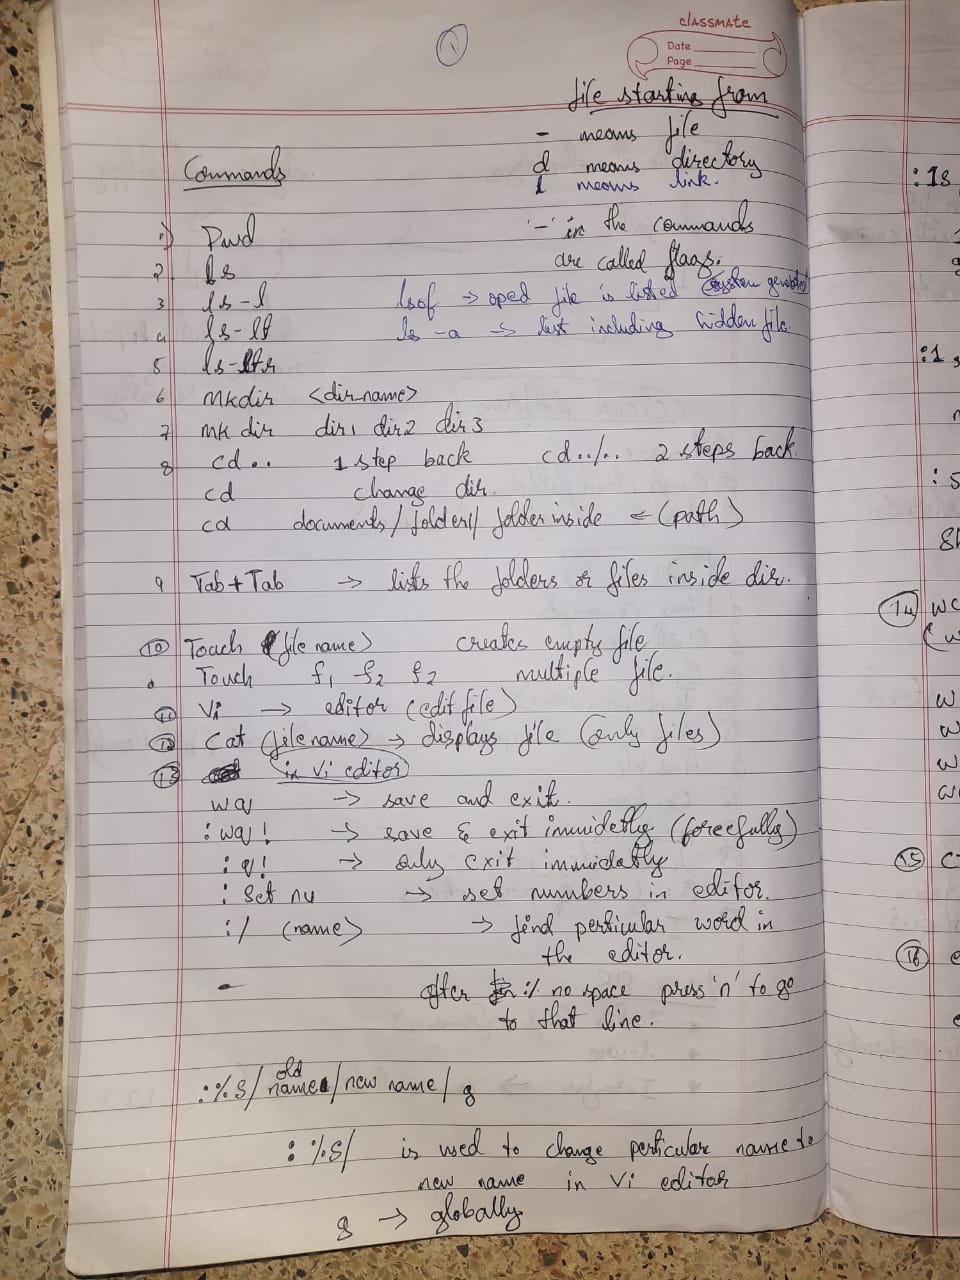 1
classmate
Date
Page
file starting from
- means file
d means directory
l means link.
Commands
'-' in the commands
are called flags.
1) Pwd
2 ls
3 ls-l lsof → oped file is listed (system generated)
4 ls-lt ls -a → list including hidden file.
5 ls-ltr
6 mkdir <dir_name>
7 mk dir dir1 dir2 dir3
8 cd.. 1 step back cd../.. 2 steps back.
cd change dir.
cd documents/folder1/folder inside ← (path)
9 Tab+Tab → lists the folders or files inside dir.
10 Touch (file name) creates empty file
Touch f1 f2 f2 multiple file.
11 Vi → editor (edit file)
12 Cat (file name) → displays file (only files)
13 in Vi editor
wq → save and exit.
:wq! → save & exit immidetly (forcefully)
:q! → only exit immidatly
:set nu → set numbers in editor.
:/ (name) → find perticular word in
the editor.
- after :/ no space press 'n' to go
to that line.
old
:%s/name/new name/g
:%s/ is used to change perticular name to
new name in Vi editor
g → globally
:1s
:1s
:s
14 wc
15 c
16 e